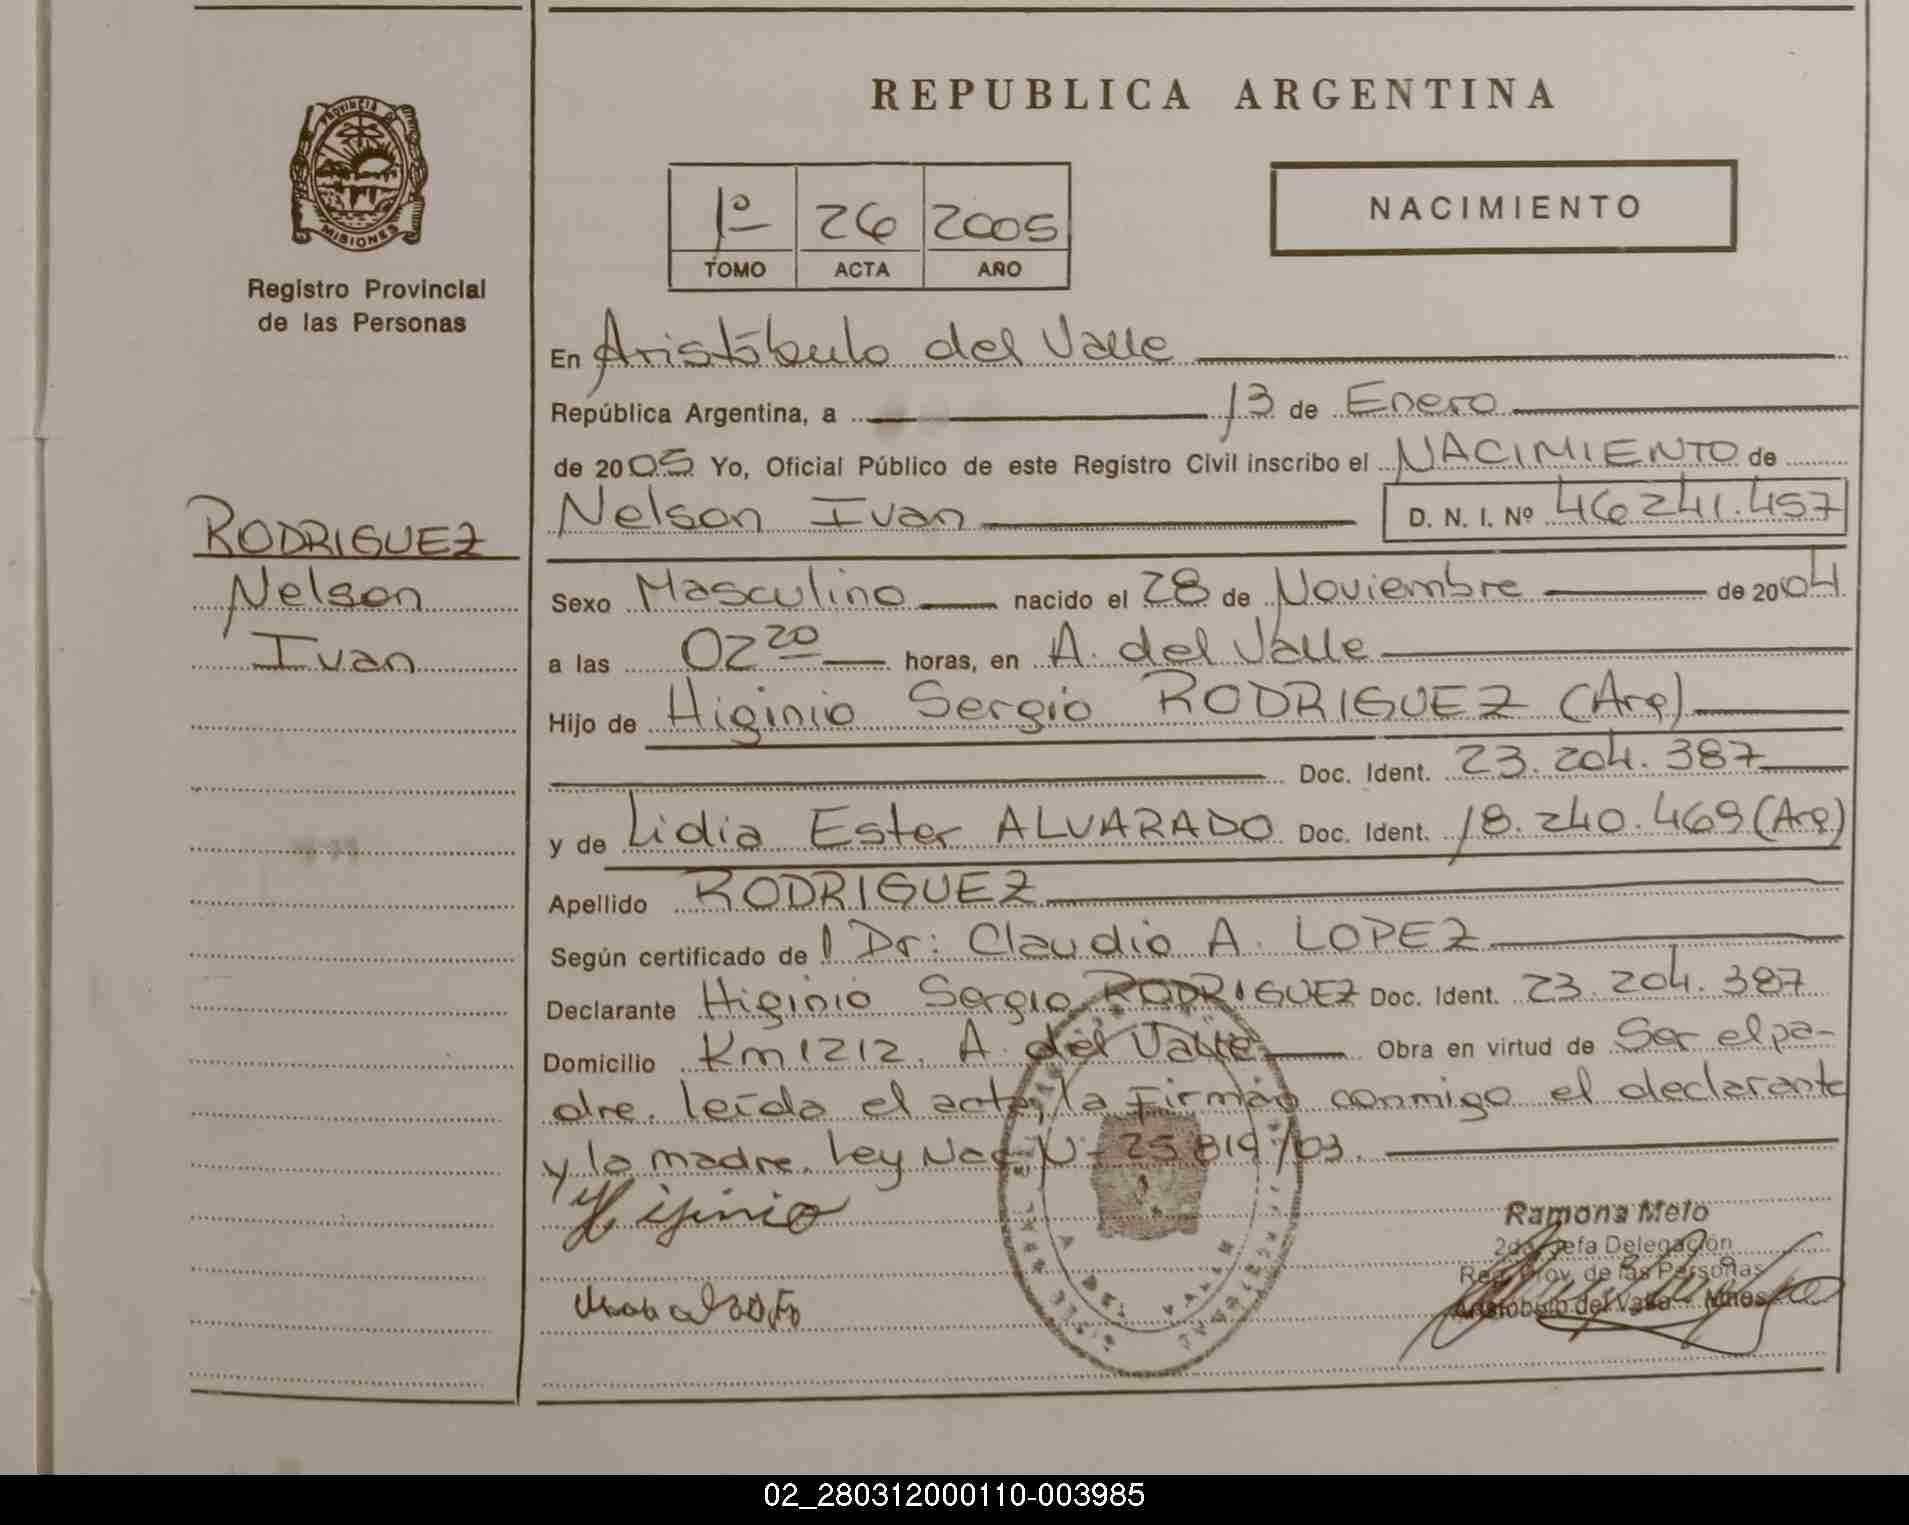 REPUBLICA ARGENTINA
PROVINCIA DE
MISIONES
Registro Provincial
de las Personas
1º 26 2005
TOMO ACTA AÑO
NACIMIENTO
RODRIGUEZ
Nelson
Ivan
En Aristóbulo del Valle
República Argentina, a 13 de Enero
de 2005 Yo, Oficial Público de este Registro Civil inscribo el NACIMIENTO de
Nelson Ivan D. N. I. Nº 46241.457
Sexo Masculino nacido el 28 de Noviembre de 2004
a las 02 20 horas, en A. del Valle
Hijo de Higinio Sergio RODRIGUEZ (Arg)
Doc. Ident. 23.204.387
y de Lidia Ester ALVARADO Doc. Ident. 18.240.469 (Arg)
Apellido RODRIGUEZ
Según certificado de l Dr: Claudio A. LOPEZ
Declarante Higinio Sergio RODRIGUEZ Doc. Ident. 23.204.387
Domicilio Km 1212. A. del Valle Obra en virtud de Ser el pa-
dre. leída el acta, la Firman conmigo el declarante
y la madre. Ley Nac Nº 25819/03.
Higinio
A DEL VALLE
Ramona Melo
2da. Jefa Delegación
Reg. Prov. de las Personas
Aristóbulo del Valle Mnes
02_280312000110-003985